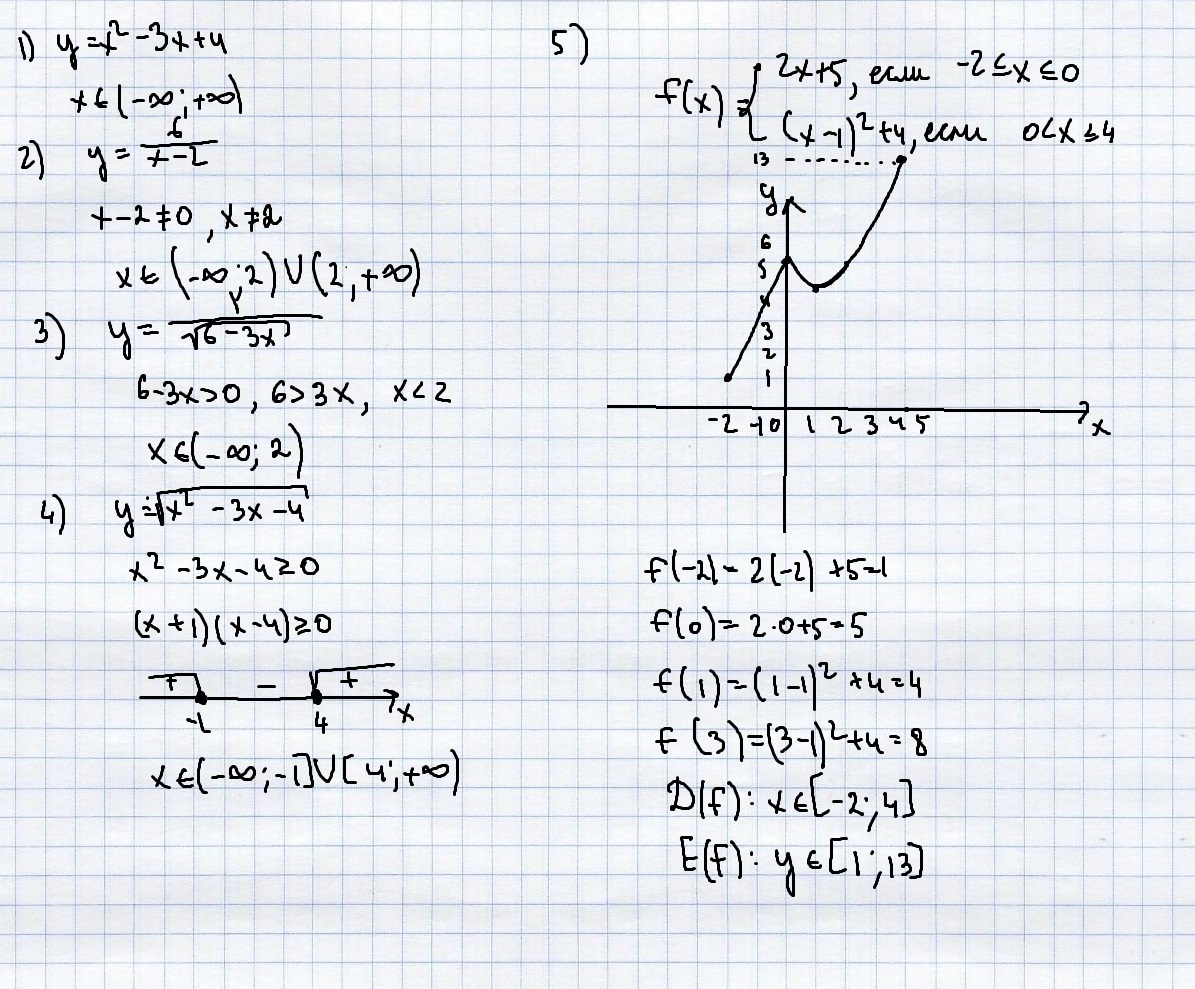 1) y = x² - 3x + 4
x ∈ (-∞; +∞)
2) y = 6/(x-2)
x - 2 ≠ 0, x ≠ 2
x ∈ (-∞; 2) ∪ (2; +∞)
3) y = 4/√(6-3x)
6-3x > 0, 6 > 3x, x < 2
x ∈ (-∞; 2)
4) y = √(x² - 3x - 4)
x² - 3x - 4 ≥ 0
(x + 1)(x - 4) ≥ 0
+ - +
-1 4 x
x ∈ (-∞; -1] ∪ [4; +∞)
5)
f(x) = { 2x+5, если -2 ≤ x ≤ 0
(x-1)² + 4, если 0 < x ≤ 4
13
y
6
5
4
3
2
1
-2 -1 0 1 2 3 4 5 x
f(-2) = 2(-2) + 5 = 1
f(0) = 2·0+5 = 5
f(1) = (1-1)² + 4 = 4
f(3) = (3-1)² + 4 = 8
D(f): x ∈ [-2; 4]
E(f): y ∈ [1; 13]